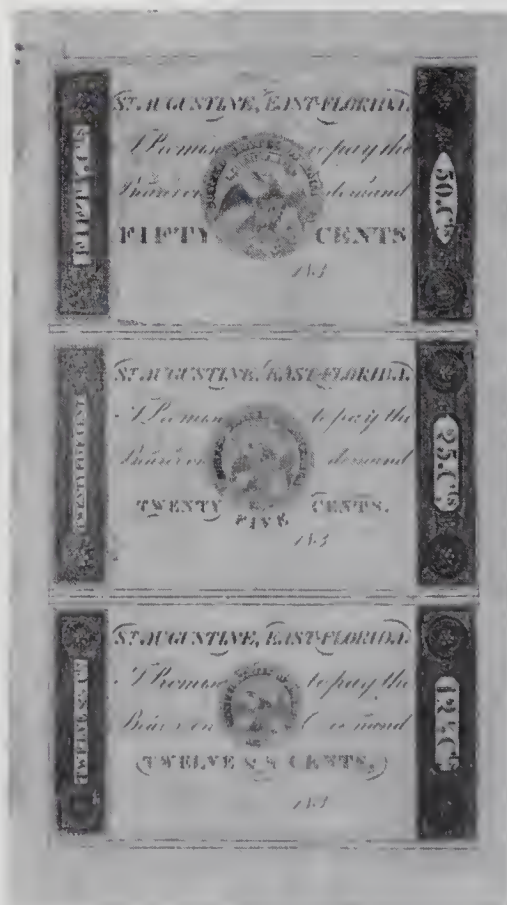 ST. AUGUSTINE, EAST-FLORIDA.
I Promise to pay the
Bearer on demand
FIFTY CENTS
183
FIFTY.C'S
50.C's
ST. AUGUSTINE, EAST-FLORIDA.
I Promise to pay the
Bearer on demand
TWENTY CENTS.
FIVE
183
TWENTY FIVE CENTS
25.C's
ST. AUGUSTINE, EAST-FLORIDA.
I Promise to pay the
Bearer on demand
(TWELVE & ½ CENTS,)
183
TWELVE & ½ C's
12½ C's